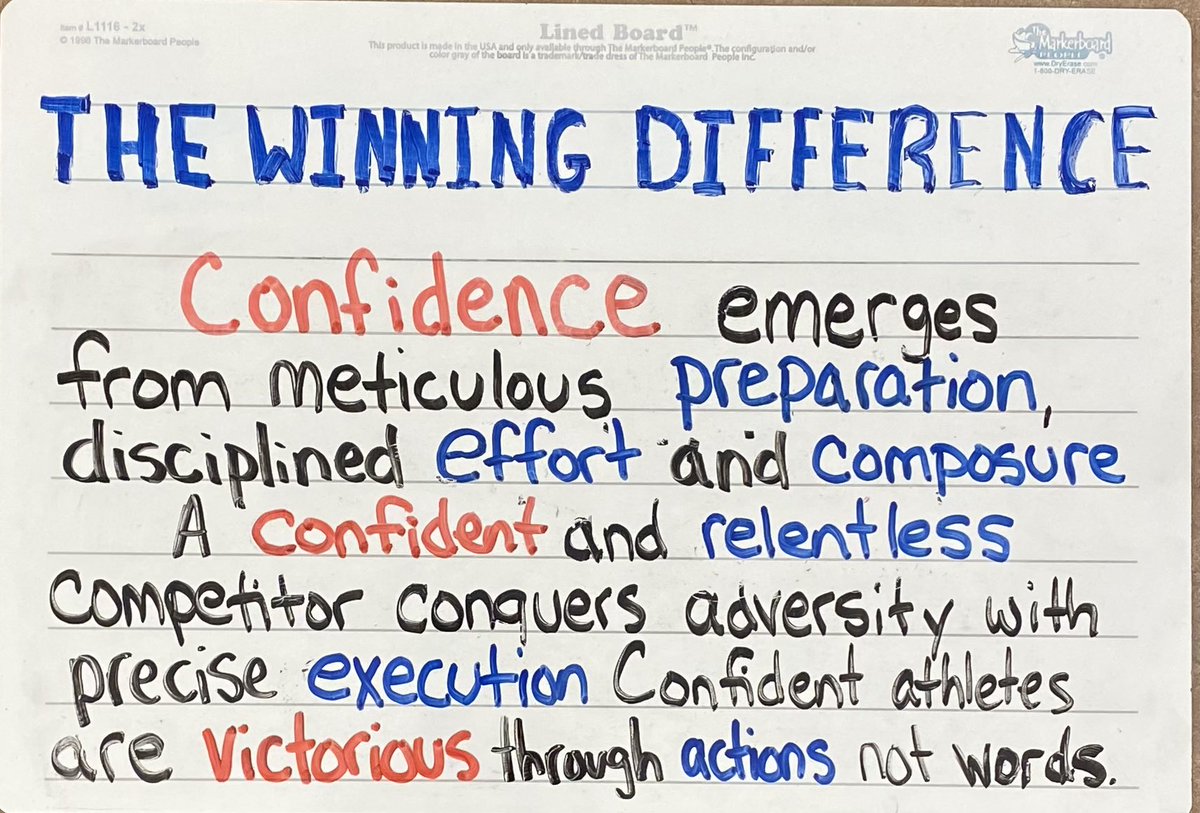 Item # L1116 - 2x
© 1998 The Markerboard People
Lined Board™
This product is made in the USA and only available through The Markerboard People®. The configuration and/or
color gray of the board is a trademark/trade dress of The Markerboard People Inc.
The
Markerboard
PEOPLE®
www.DryErase.com
1-800-DRY-ERASE
THE WINNING DIFFERENCE
Confidence emerges
from meticulous preparation,
disciplined effort and composure
A confident and relentless
competitor conquers adversity with
precise execution Confident athletes
are victorious through actions not words.